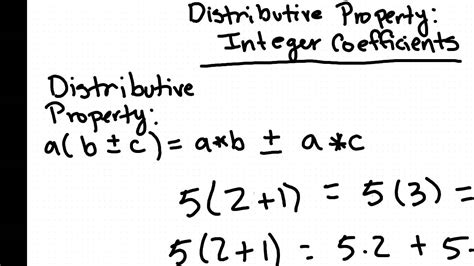 Distributive Property:
Integer Coefficients
Distributive
Property:
a(b ± c) = a*b ± a*c
5(2+1) = 5(3) =
5(2+1) = 5.2 + 5.